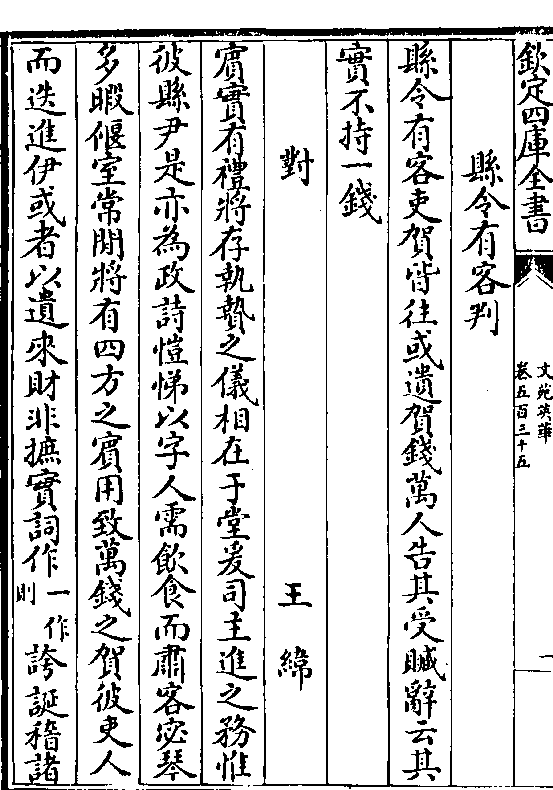 欽定四庫全書
文苑英華
卷五百三十五
一
縣令有客判
縣令有客吏賀皆往或遺賀錢萬人告其受贓辭云其
實不持一錢
對 王緯
賓實有禮將存執贄之儀相在于堂爰司主進之務惟
彼縣尹是亦為政詩愷悌以字人需飲食而肅客宓琴
多暇偃室常閒將有四方之賓用致萬錢之賀彼吏人
而迭進伊或者以遺來財非摭實詞作一作則誇誕稽諸